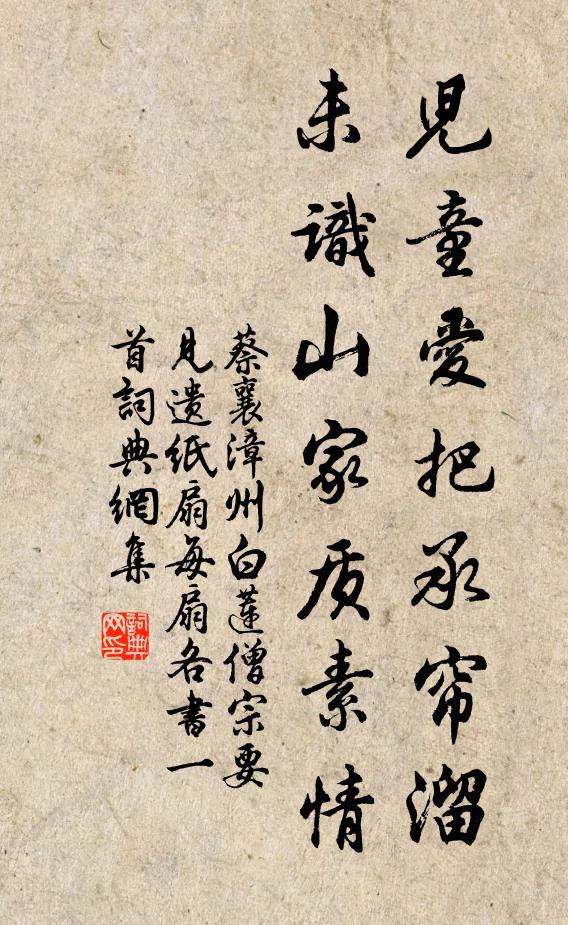 児童愛把承帘溜
未識山家质素情
蔡襄漳州白莲僧宗要
見遗纸扇每扇各書一
首詞典網集
詞典網印